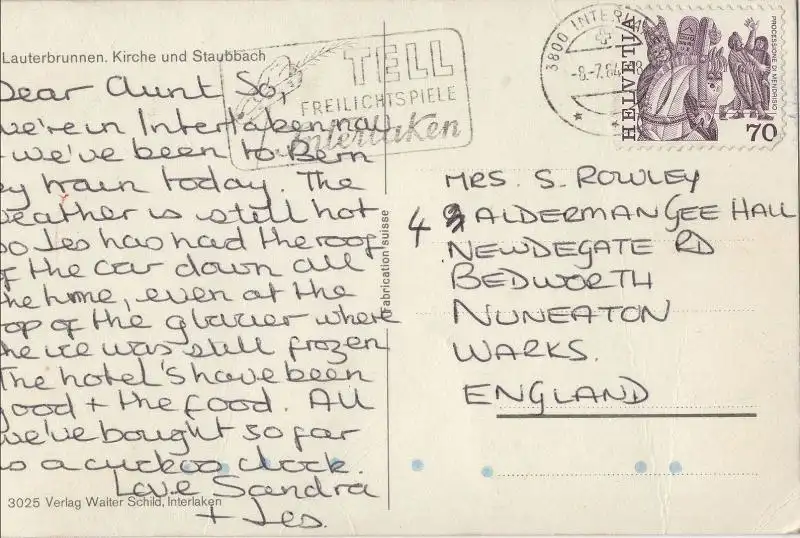 Lauterbrunnen. Kirche und Staubbach
Dear Aunt So,
we're in Interlaken now
+ we've been to Bern
by train today. The
weather is still hot
so Les has had the roof
of the car down all
the time, even at the
top of the glacier where
the ice was still frozen
The hotel's have been
good + the food. All
we've bought so far
is a cuckoo clock.
Love Sandra
+ Les.
3025 Verlag Walter Schild, Interlaken
Fabrication suisse
TELL
FREILICHTSPIELE
Interlaken
3800 INTERLAKEN
-8.-7.84-18
HELVETIA
PROCESSIONE DI MENDRISIO
70
MRS. S. ROWLEY
4 ALDERMAN GEE HALL
NEWDEGATE RD
BEDWORTH
NUNEATON
WARKS.
ENGLAND